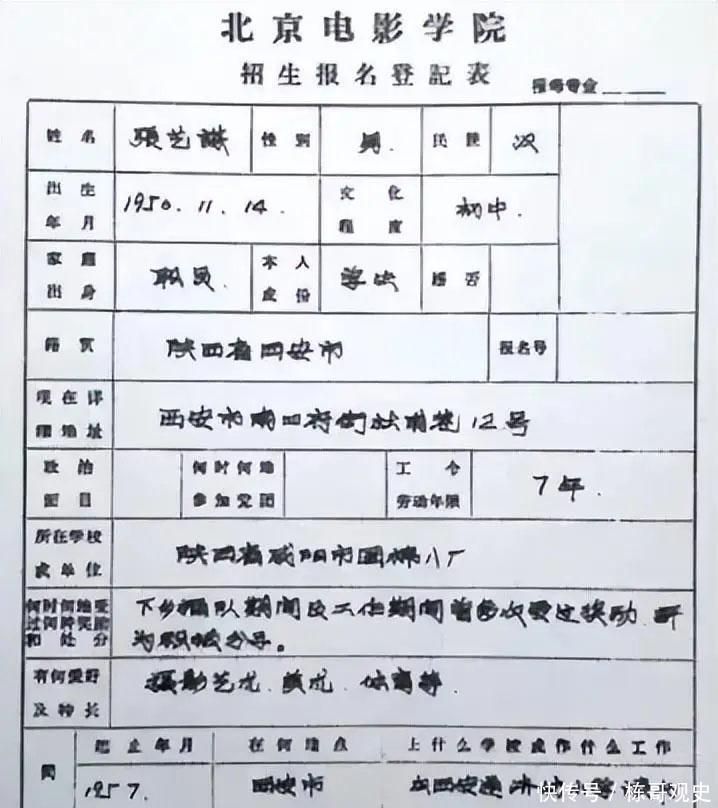 北京电影学院
招生报名登記表
报考专业
姓名 張艺謀 性别 男. 民族 汉
出生年月 1950.11.14. 文化程度 初中.
家庭出身 职员. 本人成份 学生 婚否
籍贯 陕西省西安市 报名号
现在详细地址 西安市 12号
政治面目 何时何地参加党团 工令劳动年限 7年.
所在学校或单位 陕西省咸阳市国棉八厂
何时何地受过何种奖励和处分 下乡插队期间及工作期间曾多次受过奖励.
为积极分子。
有何爱好及特长 摄影艺术、美术、体育等.
起止年月 在何地点 上什么学校或作什么工作
1957. 西安市 在西安
快传号 / 栋哥观史